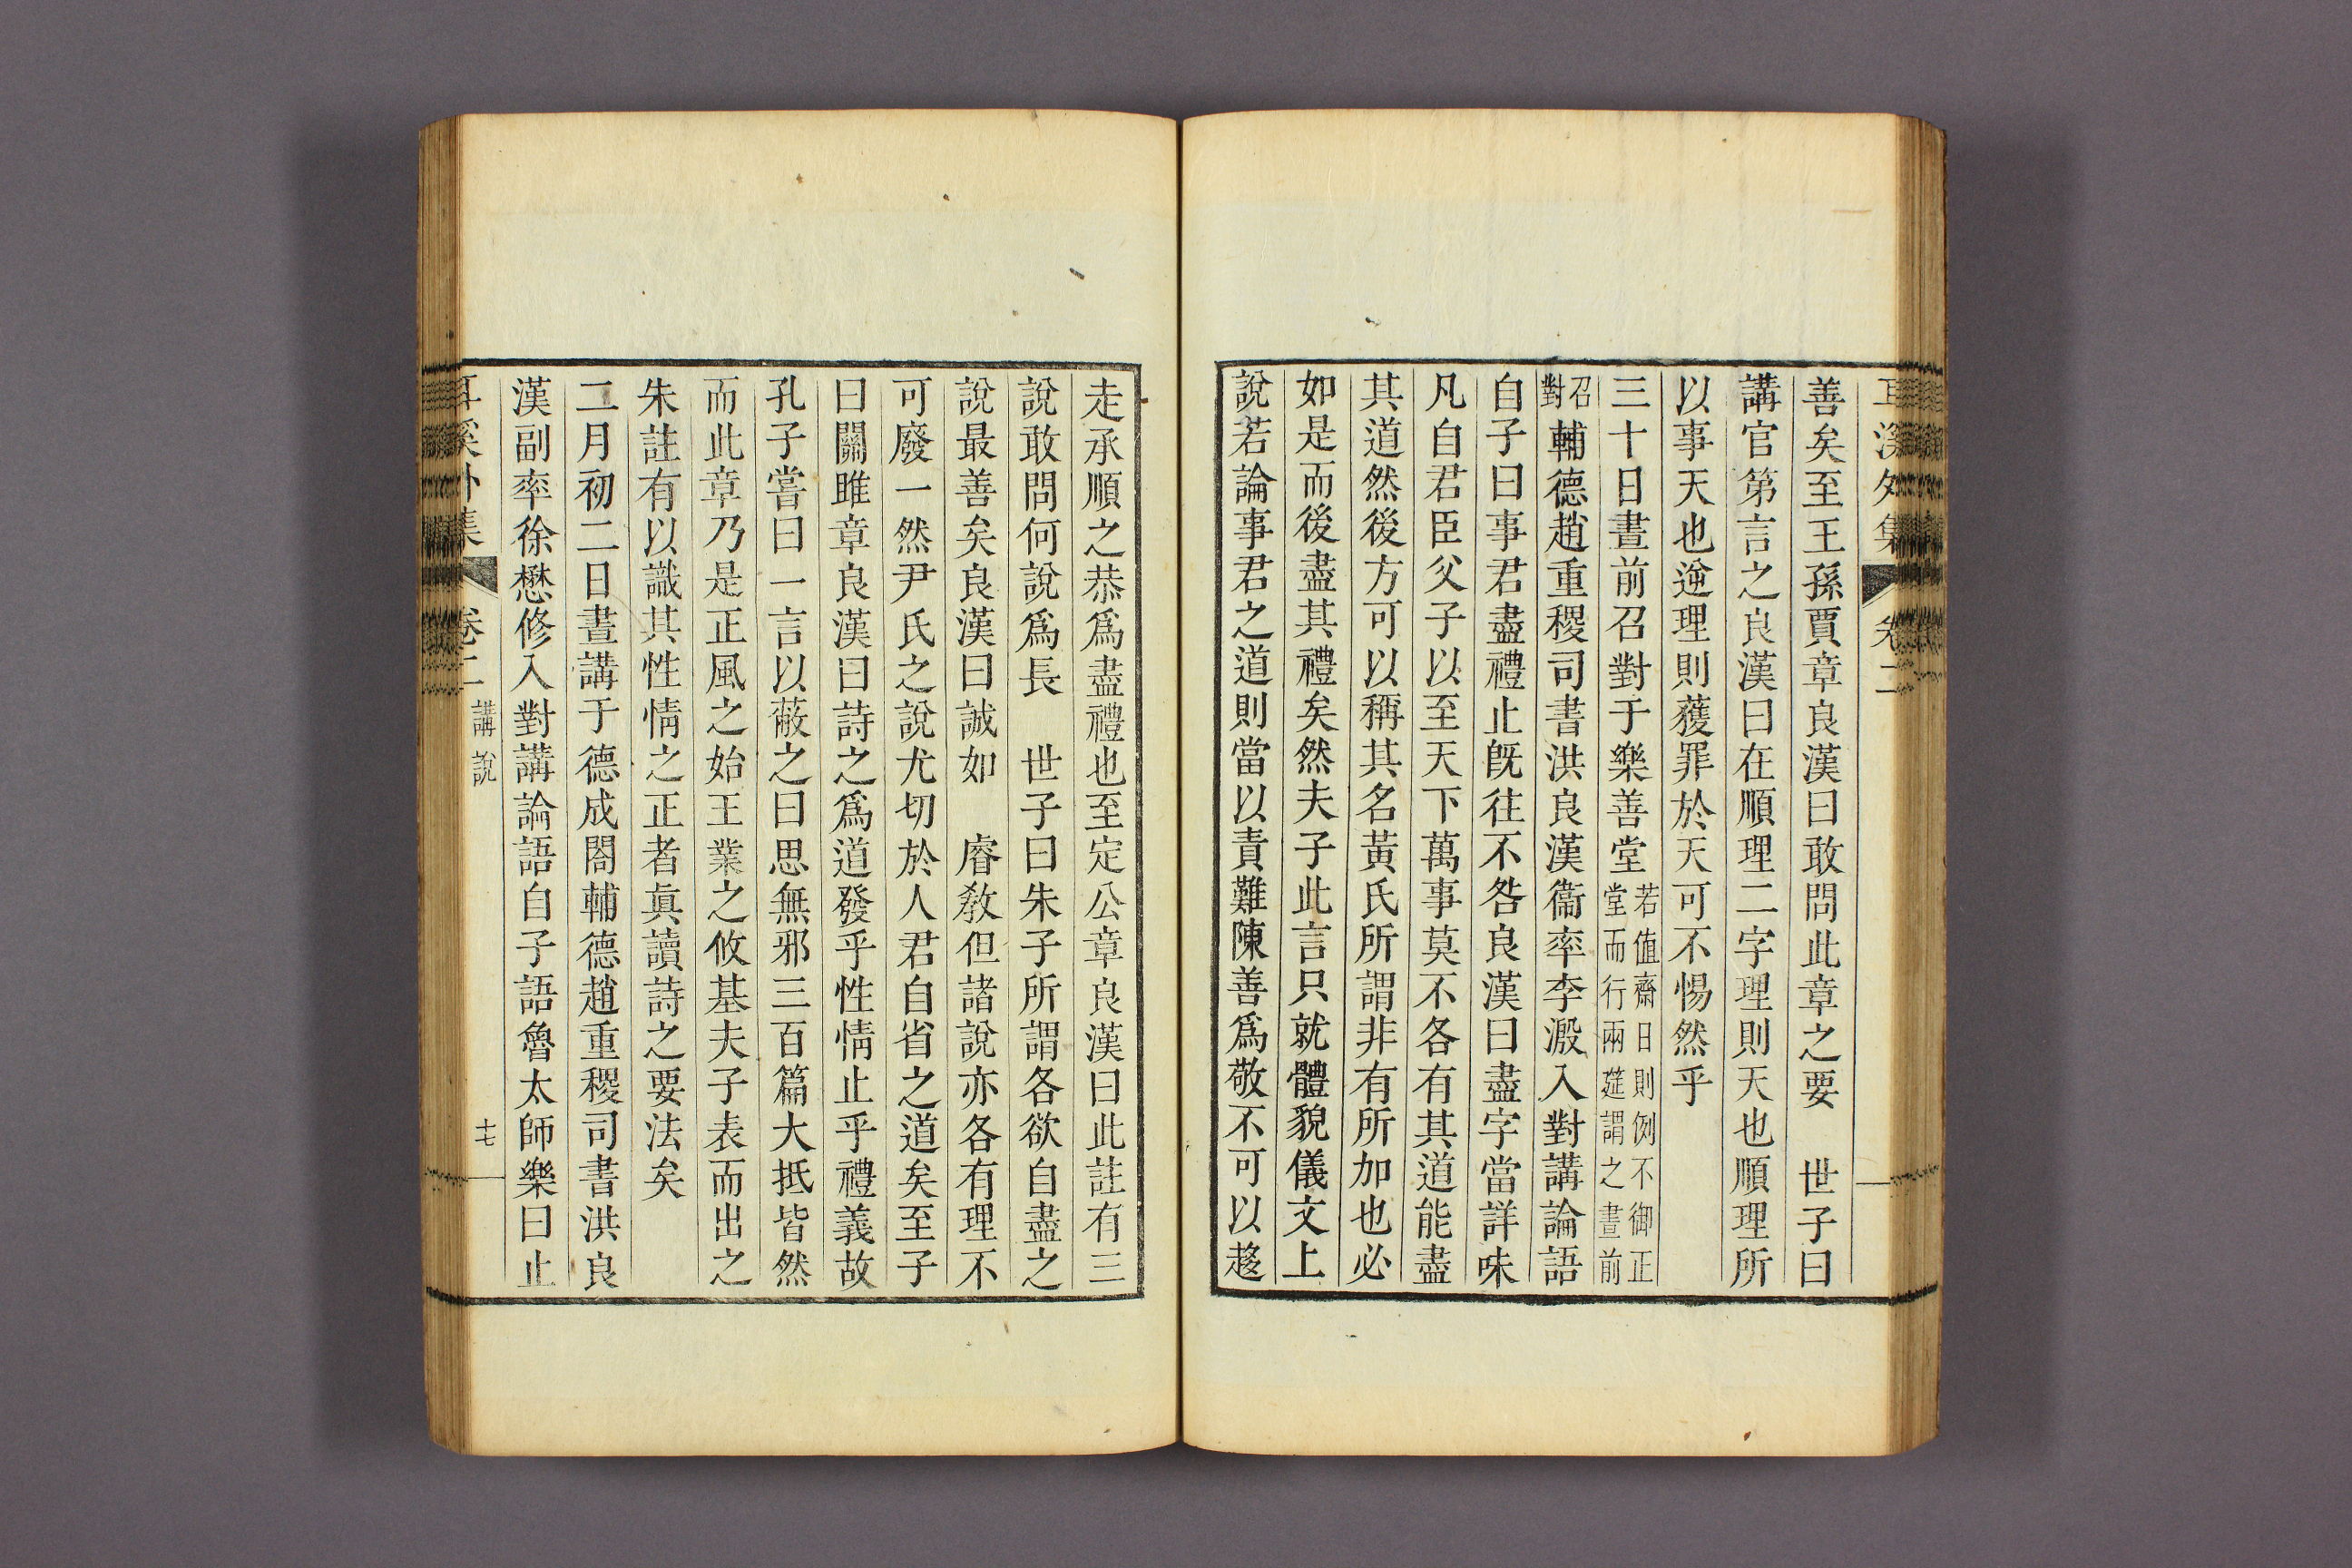 耳溪外集 卷二
善矣至王孫賈章良漢曰敢問此章之要 世子曰
講官第言之良漢曰在順理二字理則天也順理所
以事天也逆理則獲罪於天可不惕然乎
三十日晝前召對于樂善堂若值齋日則例不御正堂而行兩筵謂之晝前
召對輔德趙重稷司書洪良漢衞率李溵入對講論語
自子曰事君盡禮止旣往不咎良漢曰盡字當詳味
凡自君臣父子以至天下萬事莫不各有其道能盡
其道然後方可以稱其名黃氏所謂非有所加也必
如是而後盡其禮矣然夫子此言只就體貌儀文上
說若論事君之道則當以責難陳善爲敬不可以趍
走承順之恭爲盡禮也至定公章良漢曰此註有三
說敢問何說爲長 世子曰朱子所謂各欲自盡之
說最善矣良漢曰誠如 睿敎但諸說亦各有理不
可廢一然尹氏之說尤切於人君自省之道矣至子
曰關雎章良漢曰詩之爲道發乎性情止乎禮義故
孔子嘗曰一言以蔽之曰思無邪三百篇大抵皆然
而此章乃是正風之始王業之攸基夫子表而出之
朱註有以識其性情之正者眞讀詩之要法矣
二月初二日晝講于德成閤輔德趙重稷司書洪良
漢副率徐懋修入對講論語自子語魯太師樂曰止
耳溪外集 卷二 講說 十七